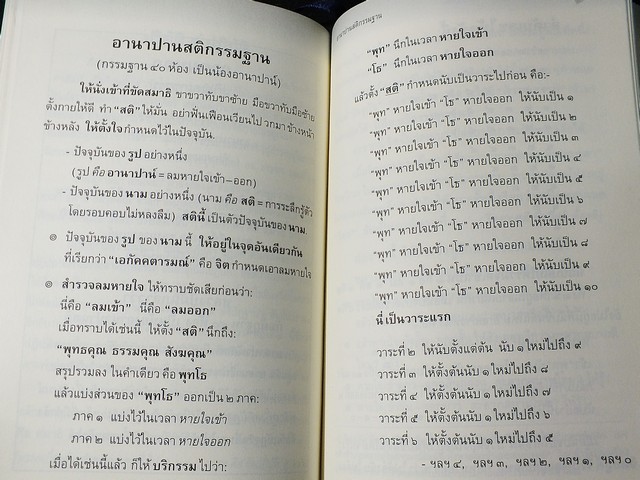 อานาปานสติกรรมฐาน
(กรรมฐาน ๔๐ ห้อง เป็นน้องอานาปาน์)
ให้นั่งเข้าที่ขัดสมาธิ ขาขวาทับขาซ้าย มือขวาทับมือซ้าย
ตั้งกายให้ดี ทำ "สติ" ให้มั่น อย่าฟั่นเฟือนเวียนไป วกมาข้างหน้า
ข้างหลัง ให้ตั้งใจกำหนดไว้ในปัจจุบัน.
- ปัจจุบันของ รูป อย่างหนึ่ง
(รูป คือ อานาปาน์ = ลมหายใจเข้า–ออก)
- ปัจจุบันของ นาม อย่างหนึ่ง (นาม คือ สติ = การระลึกรู้ตัว
โดยรอบคอบไม่หลงลืม) สตินี้ เป็นตัวปัจจุบันของ นาม.
๏ ปัจจุบันของ รูป ของ นาม นี้ ให้อยู่ในจุดอันเดียวกัน
ที่เรียกว่า "เอกัคคตารมณ์" คือ จิต กำหนดเอาลมหายใจ
๏ สำรวจลมหายใจ ให้ทราบชัดเสียก่อนว่า:
นี่คือ "ลมเข้า" นี่คือ "ลมออก"
เมื่อทราบได้เช่นนี้ ให้ตั้ง "สติ" นึกถึง:
"พุทธคุณ ธรรมคุณ สังฆคุณ"
สรุปรวมลง ในคำเดียว คือ พุทโธ
แล้วแบ่งส่วนของ "พุทโธ" ออกเป็น ๒ ภาค:
ภาค ๑ แบ่งไว้ในเวลา หายใจเข้า
ภาค ๒ แบ่งไว้ในเวลา หายใจออก
เมื่อได้เช่นนี้แล้ว ก็ให้ บริกรรม ไปว่า:
อานาปานสติกรรมฐาน
"พุท" นึกในเวลา หายใจเข้า
"โธ" นึกในเวลา หายใจออก
แล้วตั้ง "สติ" กำหนดนับเป็นวาระไปก่อน คือ:-
"พุท" หายใจเข้า "โธ" หายใจออก ให้นับเป็น ๑
"พุท" หายใจเข้า "โธ" หายใจออก ให้นับเป็น ๒
"พุท" หายใจเข้า "โธ" หายใจออก ให้นับเป็น ๓
"พุท" หายใจเข้า "โธ" หายใจออก ให้นับเป็น ๔
"พุท" หายใจเข้า "โธ" หายใจออก ให้นับเป็น ๕
"พุท" หายใจเข้า "โธ" หายใจออก ให้นับเป็น ๖
"พุท" หายใจเข้า "โธ" หายใจออก ให้นับเป็น ๗
"พุท" หายใจเข้า "โธ" หายใจออก ให้นับเป็น ๘
"พุท" หายใจเข้า "โธ" หายใจออก ให้นับเป็น ๙
"พุท" หายใจเข้า "โธ" หายใจออก ให้นับเป็น ๑๐
นี่ เป็นวาระแรก
วาระที่ ๒ ให้นับตั้งแต่ต้น นับ ๑ ใหม่ไปถึง ๙
วาระที่ ๓ ให้ตั้งต้นนับ ๑ ใหม่ไปถึง ๘
วาระที่ ๔ ให้ตั้งต้นนับ ๑ ใหม่ไปถึง ๗
วาระที่ ๕ ให้ตั้งต้นนับ ๑ ใหม่ไปถึง ๖
วาระที่ ๖ ให้ตั้งต้นนับ ๑ ใหม่ไปถึง ๕
- ฯลฯ ๔, ฯลฯ ๓, ฯลฯ ๒, ฯลฯ ๑, ฯลฯ ๐